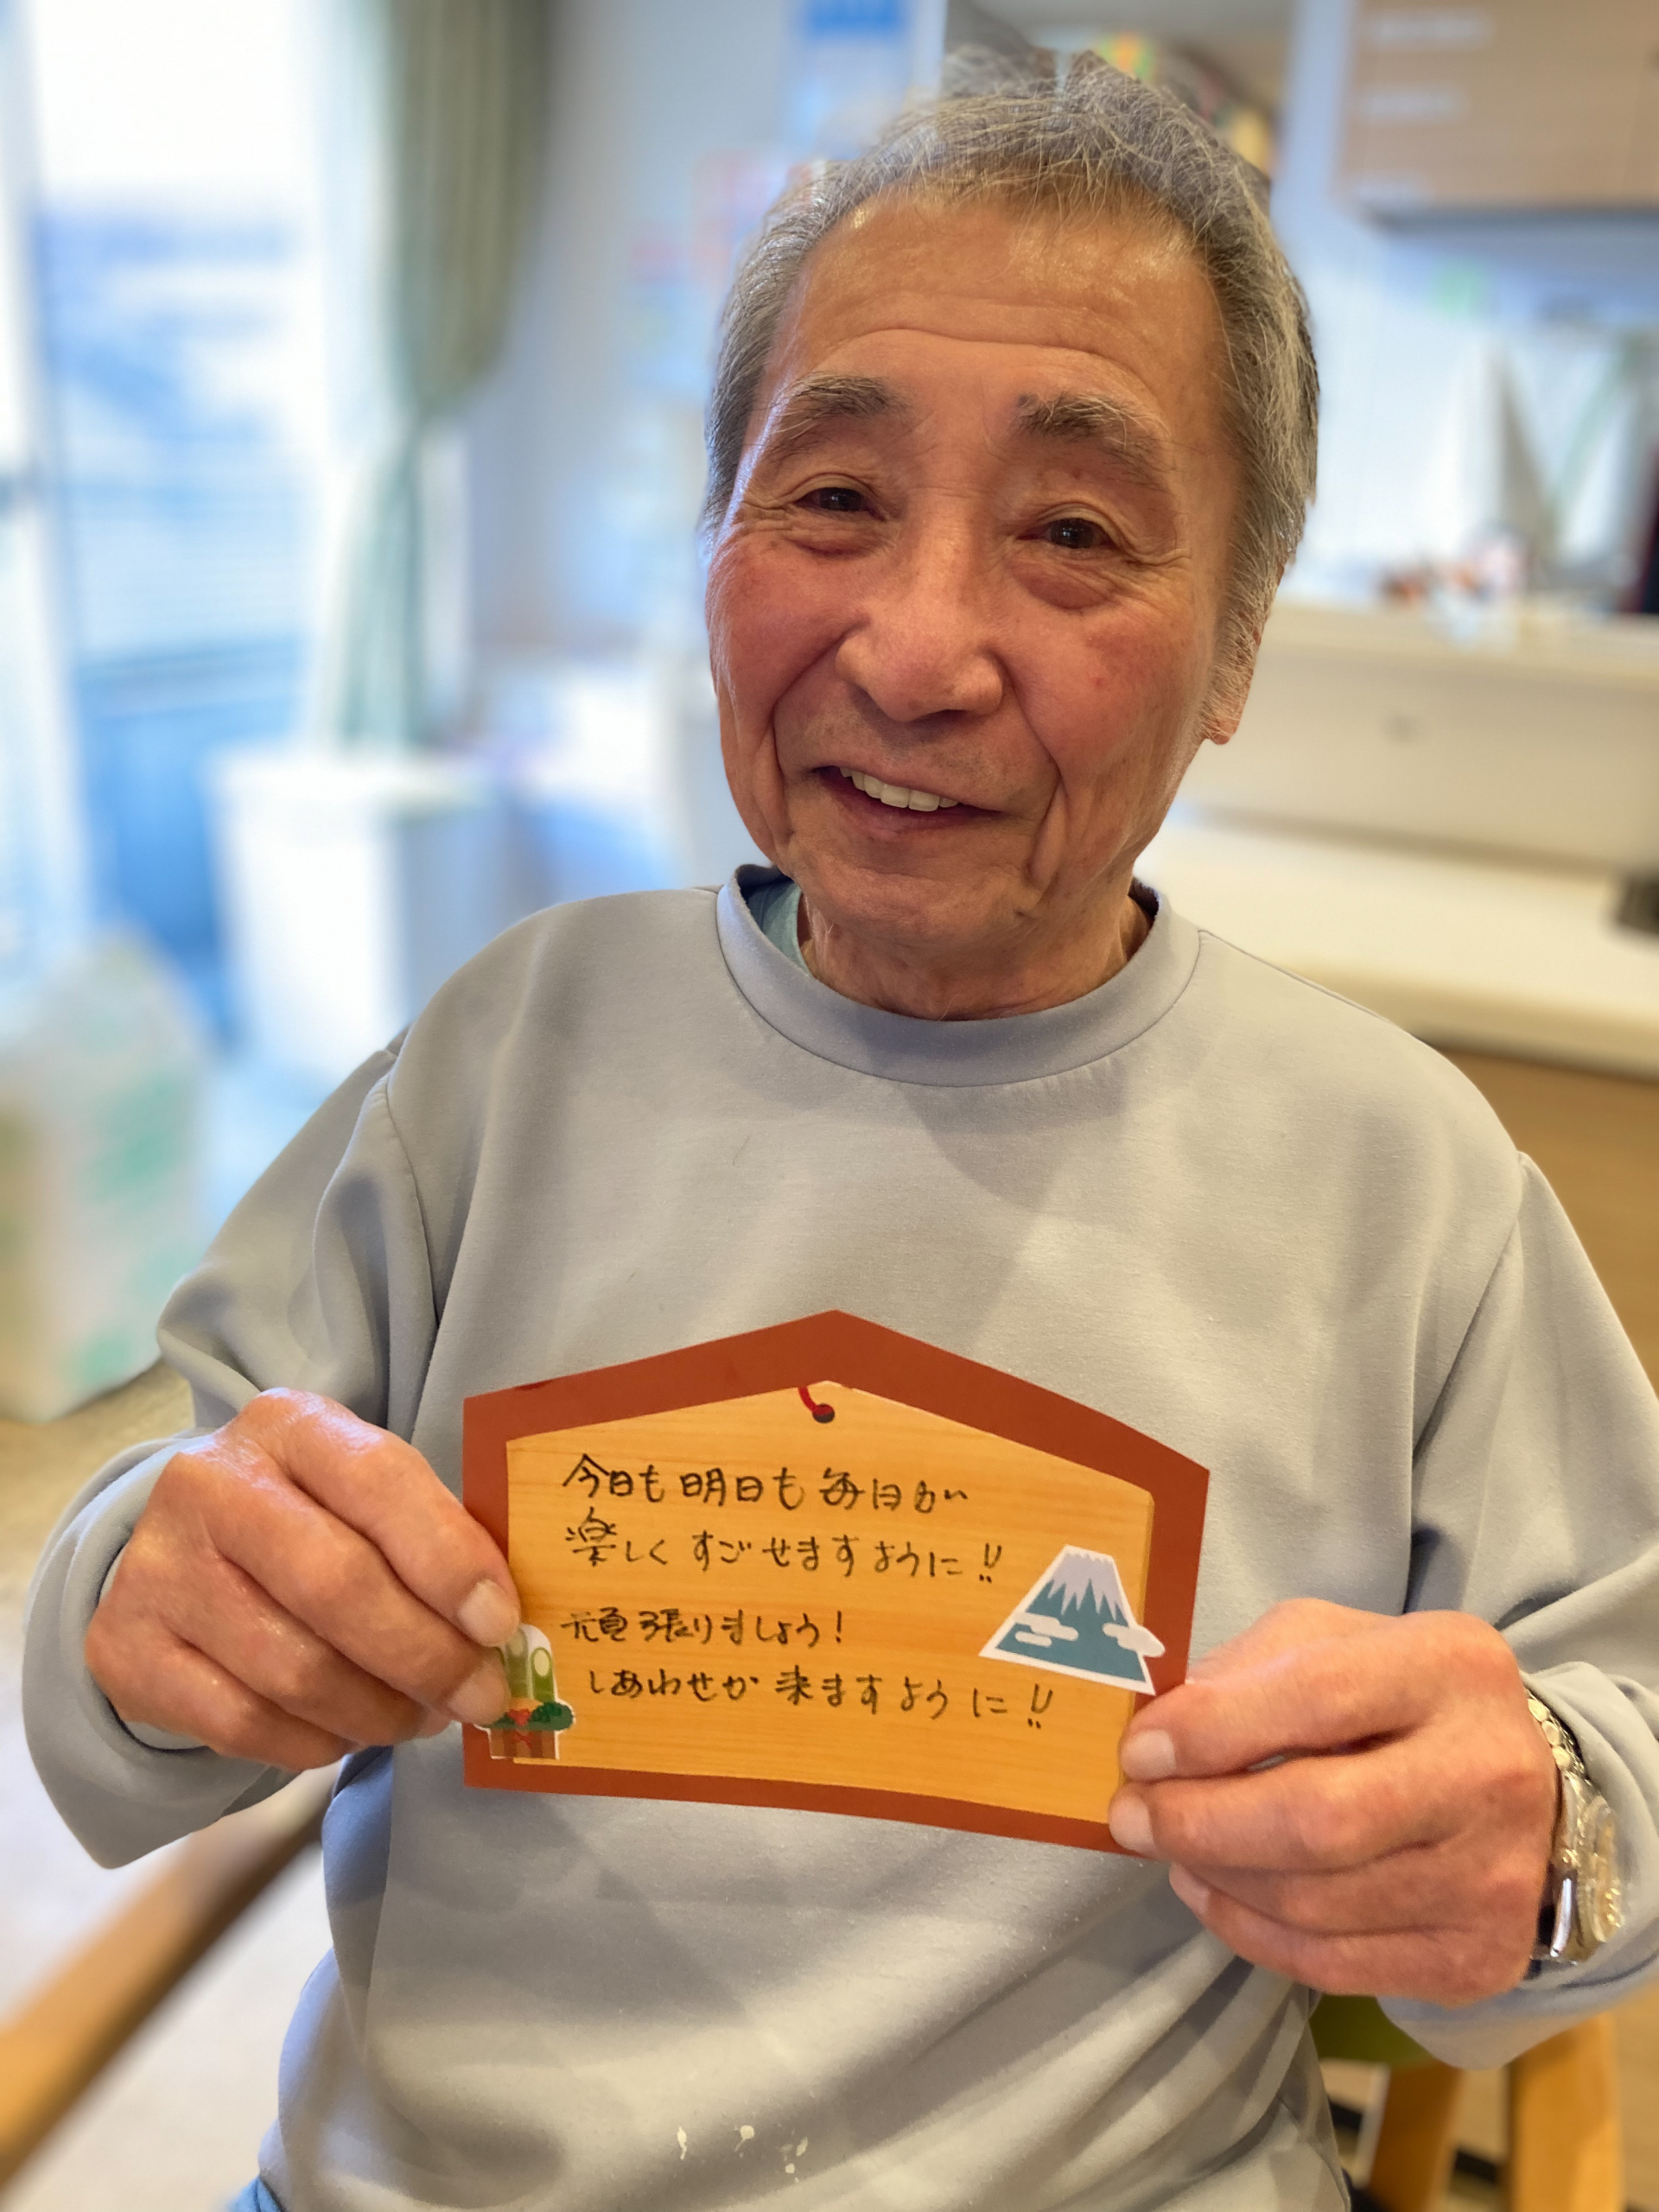 今日も明日も毎日が
楽しくすごせますように!!
頑張りましょう!
しあわせが来ますように!!